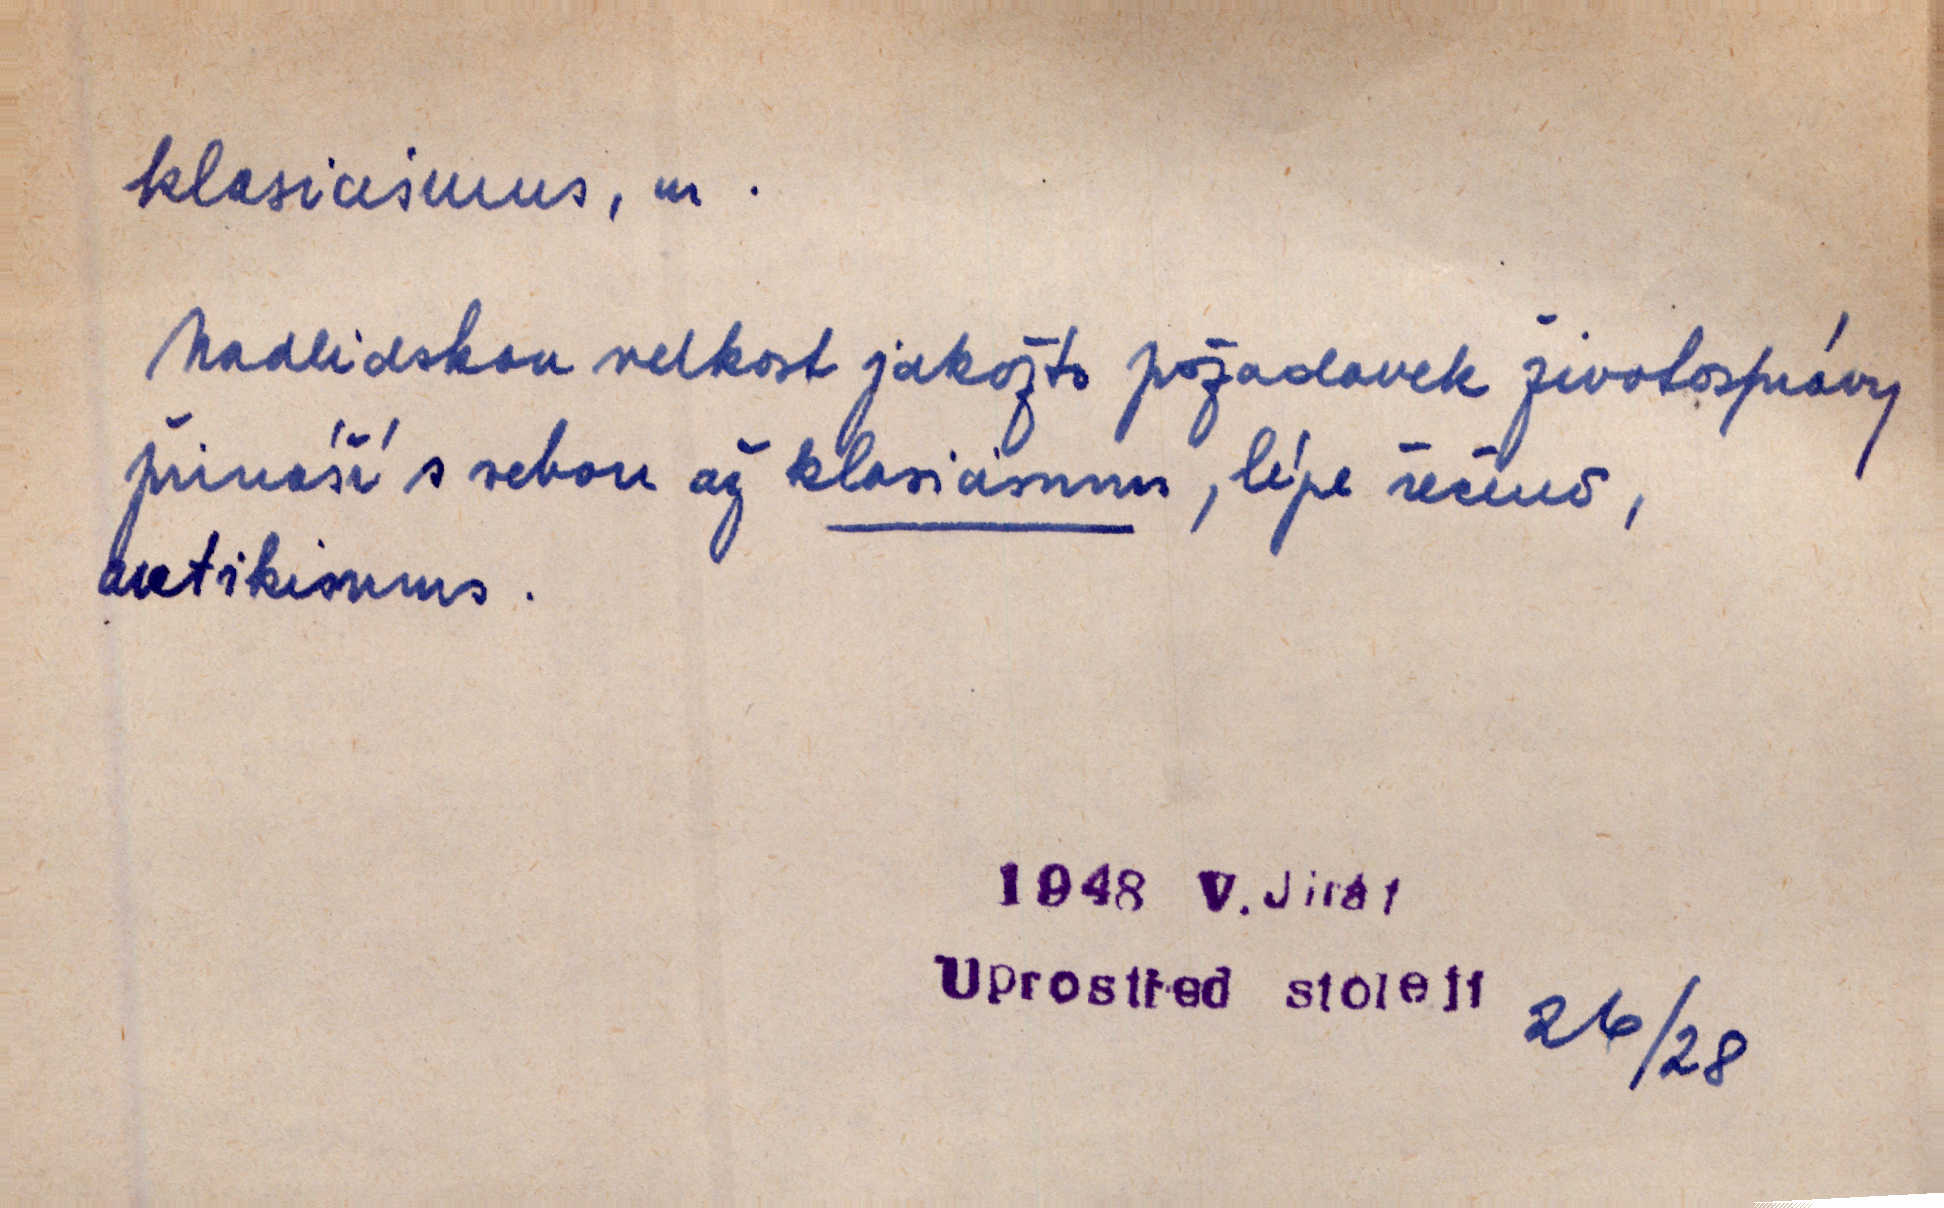 klasicismus, m.
Nadlidskou velkost jakožto požadavek životosprávy
přináší s sebou až klasicismus, lépe řečeno,
antikismus.
1948 V. Jirát
Uprostřed století
26/28